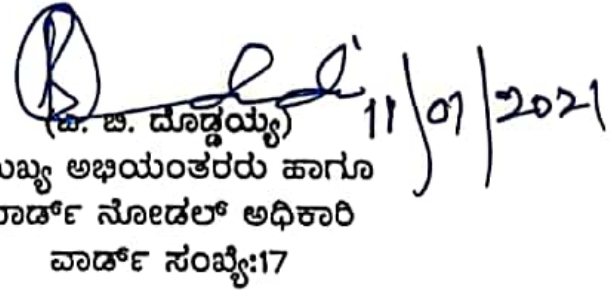 11/01/2021
ಬಿ. ದೊಡ್ಡಯ್ಯ)
ಅಭಿಯಂತರರು ಹಾಗೂ
ನೋಡಲ್ ಅಧಿಕಾರಿ
ವಾರ್ಡ್ ಸಂಖ್ಯೆ:17